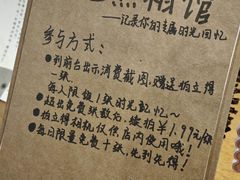 照相馆
——记录你的专属时光回忆
参与方式:
●到前台出示消费截图,赠送拍立得
一张。
每人限领1张时光记忆~
●超出免费张数后,续拍¥1.99元/张
●拍立得相机仅供店内使用哦!
●每日限量免费十张,先到先得!